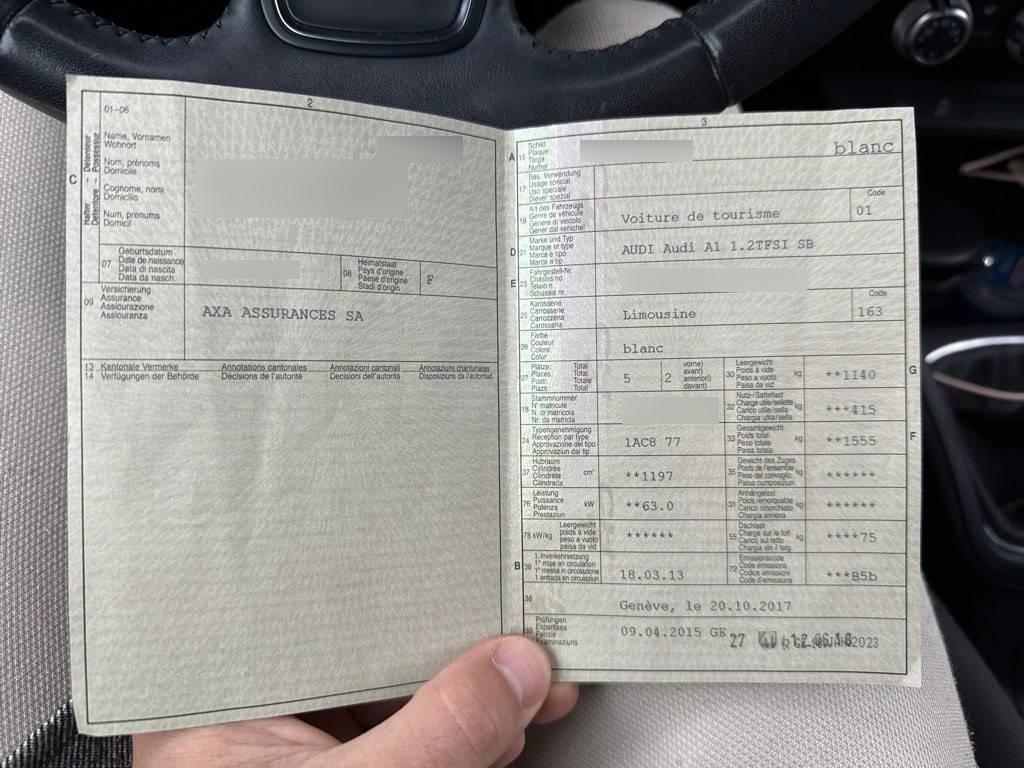 2
01-06
Name, Vornamen
Wohnort
Nom, prénoms
Domicile
Cognome, nomi
Domicilio
Num, prenums
Domicil
C
Halter – Détenteur
Detentore – Possessur
07
Geburtsdatum
Date de naissance
Data di nascita
Data da nasch.
08
Heimatstaat
Pays d'origine
Paese d'origine
Stadi d'origin
F
09
Versicherung
Assurance
Assicurazione
Assicuranza
AXA ASSURANCES SA
13 Kantonale Vermerke Annotations cantonales Annotazioni cantonali Annotaziuns chantunalas
14 Verfügungen der Behörde Décisions de l'autorité Decisioni dell'autorità Disposiziuns da l'autoritad
3
A 15
Schild
Plaque
Targa
Numer
blanc
17
Bes. Verwendung
Usage spécial
Uso speciale
Diever spezial
19
Art des Fahrzeugs
Genre de véhicule
Genere di veicolo
Gener dal vehichel
Voiture de tourisme
Code
01
D 21
Marke und Typ
Marque et type
Marca e tipo
Marca e tip
AUDI Audi A1 1.2TFSI SB
E 23
Fahrgestell-Nr.
Châssis no
Telaio n.
Schassis nr.
25
Karosserie
Carrosserie
Carrozzeria
Carossaria
Limousine
Code
163
26
Farbe
Couleur
Colore
Colur
blanc
27
Plätze: Total
Places: Total
Posti: Totale
Plazs: Total
5
2
vorne)
avant)
anteriori)
davant)
30
Leergewicht
Poids à vide
Peso a vuoto
Paisa da vid
kg
**1140
G
18
Stammnummer
N° matricule
N. di matricola
Nr. da matricla
32
Nutz-/Sattellast
Charge utile/sellette
Carico utile/sella
Chargia utila/sella
kg
***415
24
Typengenehmigung
Réception par type
Approvazione del tipo
Approvaziun dal tip
1AC8 77
33
Gesamtgewicht
Poids total
Peso totale
Paisa totala
kg
**1555
F
37
Hubraum
Cylindrée
Cilindrata
Cilindrada
cm³
**1197
35
Gewicht des Zuges
Poids de l'ensemble
Peso del convoglio
Paisa cumposiziun
kg
******
76
Leistung
Puissance
Potenza
Prestaziun
kW
**63.0
31
Anhängelast
Poids remorquable
Carico rimorchiato
Chargia annexa
kg
******
78 kW/kg
Leergewicht
poids à vide
peso a vuoto
paisa da vid
******
55
Dachlast
Charge sur le toit
Carico sul tetto
Chargia sin il tetg
kg
****75
B
36
1. Inverkehrsetzung
1re mise en circulation
1a messa in circolazione
1. entrada en circulaziun
18.03.13
72
Emissionscode
Code émissions
Codice emissioni
Code d'emissiuns
***B5b
38
Genève, le 20.10.2017
39
Prüfungen
Expertises
Perizie
Examinaziuns
09.04.2015 GE
27
2023